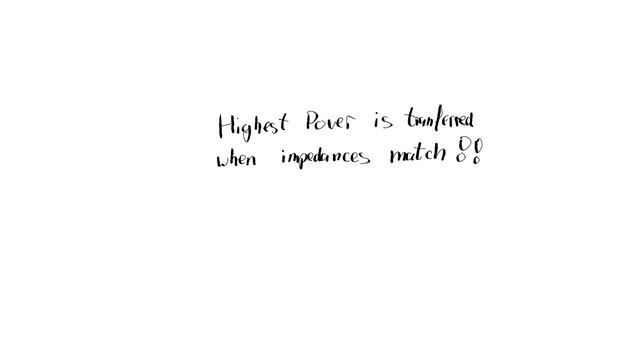 Highest Power is transferred
when impedances match !!